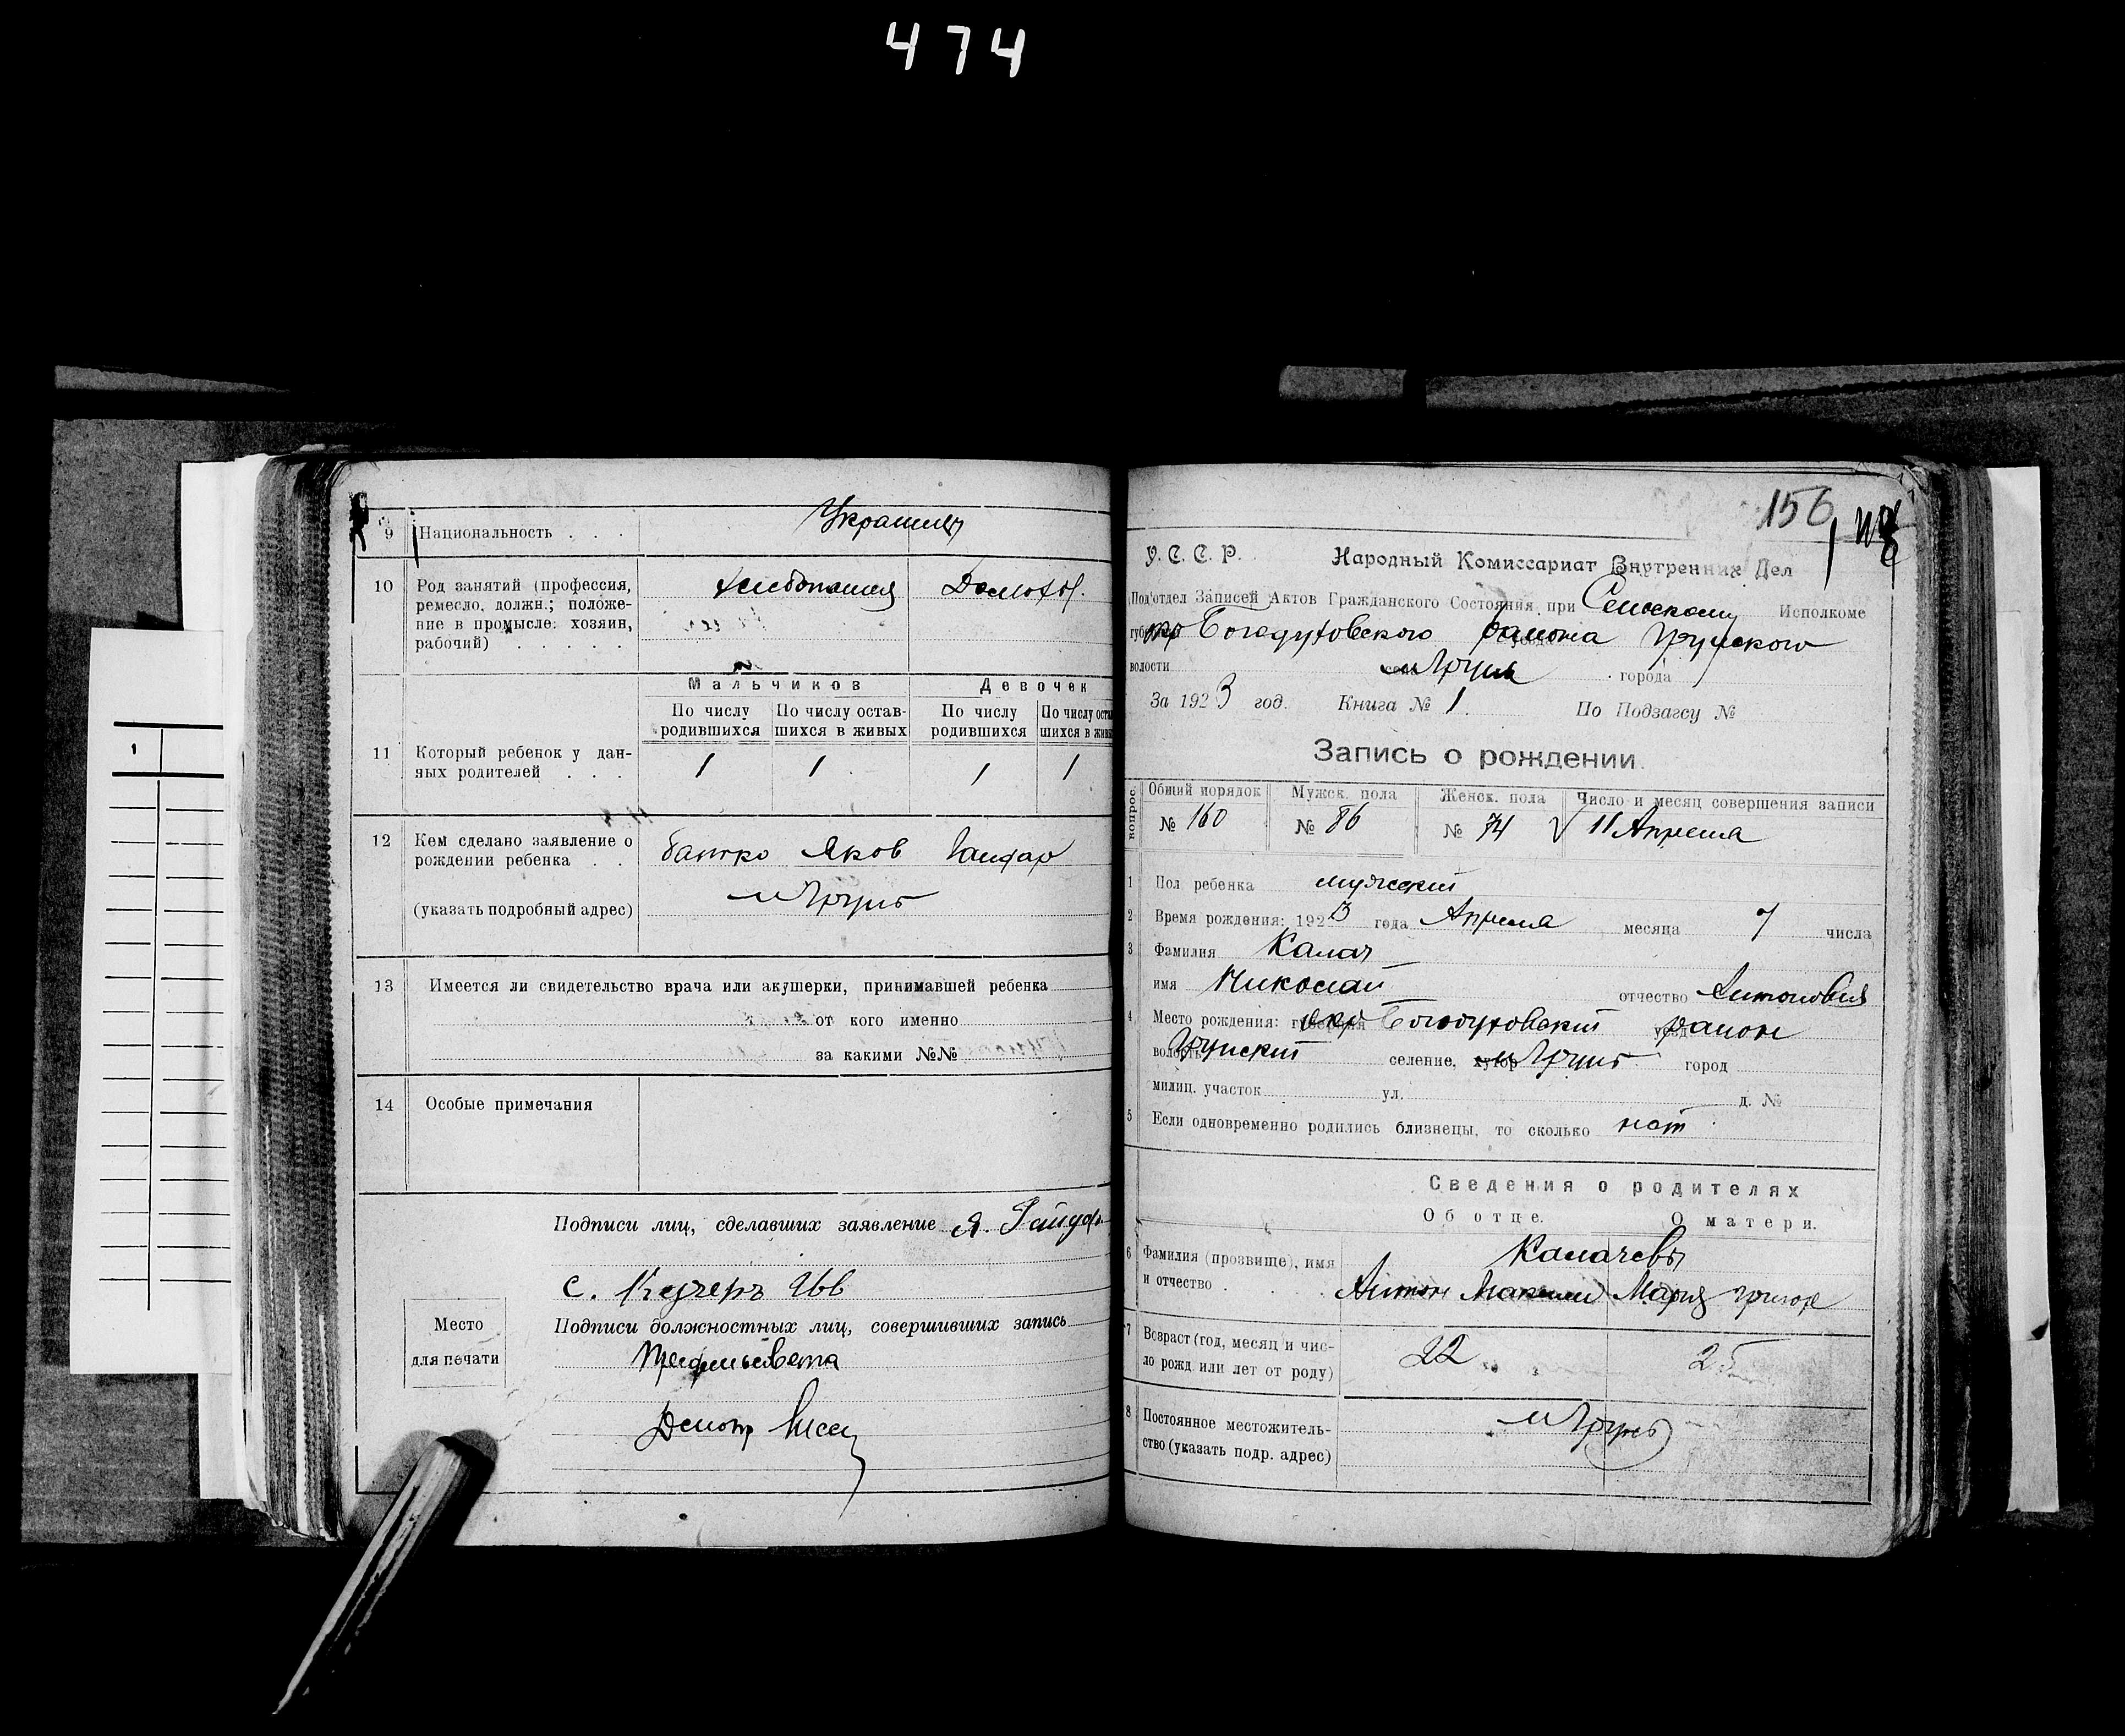 474
9 Национальность . . . Украинцы
10 Род занятий (профессия,
ремесло, должн.; положе-
ние в промысле: хозяин,
рабочий) . . . . .
хлебопашец Домохоз.
Мальчиков Девочек
По числу родившихся По числу остав-шихся в живых По числу родившихся По числу оста шихся в живы
11 Который ребенок у дан-
ных родителей . . . 1 1 1 1
12 Кем сделано заявление о
рождении ребенка . . батко Яков Гайдар
(указать подробный адрес) м Грунь
13 Имеется ли свидетельство врача или акушерки, принимавшей ребенка
от кого именно
за какими №№
14 Особые примечания
Подписи лиц, сделавших заявление Я. Гайдар
С.
Место
для печати
Подписи должностных лиц, совершивших запись
Предсельсовета
156
У. С. С. Р. Народный Комиссариат Внутренних Дел
Под'отдел Записей Актов Гражданского Состояния при Сельскому Исполкоме
окр Богодуховского района Грунского
волости м Грунь города
За 1923 год. Книга № 1 По Подзагсу №
Запись о рождении.
вопрос. Общий порядок Мужск. пола Женск. пола Число и месяц совершения записи
№ 160 № 86 № 74 11 Апреля
1 Пол ребенка мужский
2 Время рождения: 1923 года Апреля месяца 7 числа
3 Фамилия Калач
имя Николай отчество Антонович
4 Место рождения: губерния окр Богодуховский уезд район
волость Грунский селение, хутор м Грунь город
милиц. участок ул. д. №
5 Если одновременно родились близнецы, то сколько нет
Сведения о родителях
Об отце. О матери.
Калачевы
6 Фамилия (прозвище), имя
и отчество . . . Антон Максим Мария Григор
7 Возраст (год, месяц и чис-
ло рожд или лет от роду) 22 25
8 Постоянное местожитель-
ство (указать подр. адрес) м Грунь
1